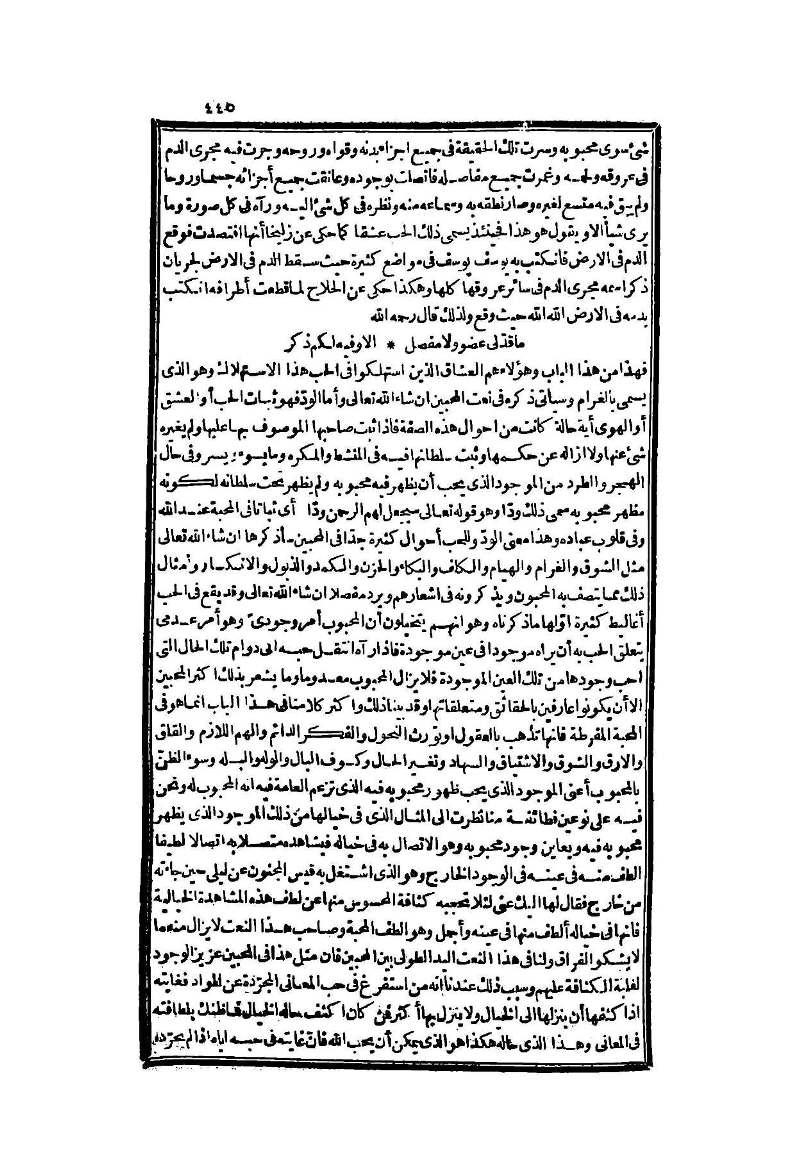 ٤٤٥
شئ سوى محبوبه وسرت تلك الحقيقة فى جميع اجزاء بدنه وقواه وروحه وجرت فيه مجرى الدم
فى عروقه ولحمه وغمرت جميع مفاصله فاتصلت بوجوده وعانقت جميع أجزائه جسما وروحا
ولم يبق فيه متسع لغيره وصار نطقه به وسماعه منه ونظره فى كل شئ اليه ورآه فى كل صورة وما
يرى شيأ الا ويقول هو هذا فحينئذ يسمى ذلك الحب عشقا كما حكى عن زليخا أنها افتصدت فوقع
الدم فى الارض فانكتب به يوسف يوسف فى مواضع كثيرة حيث سقط الدم فى الارض لجريان
ذكر اسمه مجرى الدم فى سائر عروقها كلها وهكذا حكى عن الحلاج لما قطعت أطرافه انكتب
بدمه فى الارض الله الله حيث وقع ولذلك قال رحمه الله
ما قدّ لى عضو ولا مفصل * الا وفيه لكم ذكر
فهذا من هذا الباب وهؤلاء هم العشاق الذين استهلكوا فى الحب هذا الاستهلاك وهو الذى
يسمى بالغرام وسيأتى ذكره فى نعت المحبين ان شاء الله تعالى وأما الودّ فهو ثبات الحب أو العشق
أو الهوى أية حالة كانت من احوال هذه الصفة فاذا ثبت صاحبها الموصوف بها عليها ولم يغيره
شئ عنها ولا ازاله عن حكمها وثبت سلطانها فيه فى المنشط والمكره وما يسوء ويسر وفى حال
الهجر والطرد من الموجود الذى يحب أن يظهر فيه محبوبه ولم يظهر تحت سلطانه لكونه
مظهر محبوبه سمى ذلك ودّا وهو قوله تعالى سيجعل لهم الرحمن ودّا أى ثباتا فى المحبة عند الله
وفى قلوب عباده وهذا معنى الودّ وللحب أحوال كثيرة جدّا فى المحبين سأذكرها ان شاء الله تعالى
مثل الشوق والغرام والهيام والكلف والبكاء والحزن والكمد والذبول والانكسار وأمثال
ذلك مما يتصف به المحبون ويذكرونه فى اشعارهم ويرد مفصلا ان شاء الله تعالى وقد يقع فى الحب
أغاليط كثيرة اوّلها ما ذكرناه وهو انهم يتخيلون أن المحبوب أمر وجودىّ وهو أمر عدمى
يتعلق الحب به أن يراه موجودا فى عين موجودة فاذا رآه انتقل حبه الى دوام تلك الحال التى
احب وجودها من تلك العين الموجودة فلا يزال المحبوب معدوما وما يشعر بذلك اكثر المحبين
الا أن يكونوا عارفين بالحقائق ومتعلقاتها وقد بينا ذلك واكثر كلامنا فى هذا الباب انما هو فى
المحبة المفرطة فانها تذهب بالعقول او تورث النحول والفكر الدائم والهم اللازم والقلق
والارق والشوق والاشتياق والسهاد وتغير الحال وكسوف البال والوله والبله وسوء الظنّ
بالمحبوب أعنى الموجود الذى يحب ظهور محبوبه فيه الذى تزعم العامة فيه انه المحبوب له ونحن
فيه على نوعين فطائفة منا نظرت الى المثال الذى فى خيالها من ذلك الموجود الذى يظهر
محبوبه فيه ويعاين وجود محبوبه وهو الاتصال به فى خياله فيشاهده متصلا به اتصالا لطيفا
الطف منه فى عينه فى الوجود الخارج وهو الذى اشتغل به قيس المجنون عن ليلى حين جاءته
من خارج فقال لها اليك عنى لئلا تحجبه كثافة المحسوس منها عن لطف هذه المشاهدة الخيالية
فانها فى خياله ألطف منها فى عينه وأجمل وهو الطف المحبة وصاحب هذا النعت لا يزال منعما
لا يشكو الفراق ولنا فى هذا النعت اليد الطولى بين المحبين فان مثل هذا فى المحبين عزيز الوجود
لغلبة الكثافة عليهم وسبب ذلك عندنا انه من استفرغ فى حب المعانى المجرّدة عن المواد فغايته
اذا كثفها أن ينزلها الى الخيال ولا ينزل بها أكثر فمن كان اكثف حاله الخيال فما ظنك بلطافته
فى المعانى وهذا الذى حاله هكذا هو الذى يمكن أن يحب الله فان غايته فى حبه اياه اذا لم يجرّده